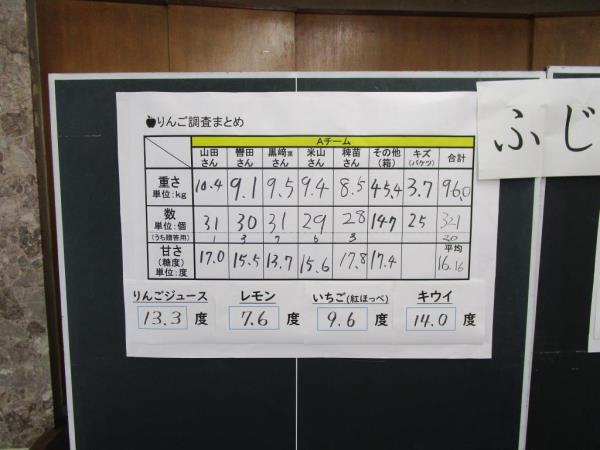 りんご調査まとめ
ふじ
Aチーム
山田さん 轡田さん 黒﨑東さん 米山さん 稗苗さん その他(箱) キズ(バケツ) 合計
重さ 単位:kg 10.4 9.1 9.5 9.4 8.5 45.4 3.7 96.0
数 単位:個 31 30 31 29 28 147 25 321
(うち贈答用) 1 3 7 6 3 20
甘さ(糖度) 単位:度 17.0 15.5 13.7 15.6 17.8 17.4 平均 16.16
りんごジュース レモン いちご(紅ほっぺ) キウイ
13.3 度 7.6 度 9.6 度 14.0 度